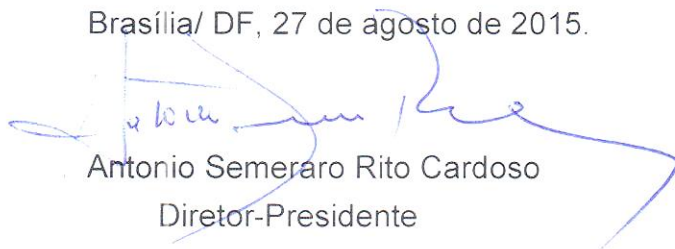 Brasília/ DF, 27 de agosto de 2015.
Antonio Semeraro Rito Cardoso
Diretor-Presidente